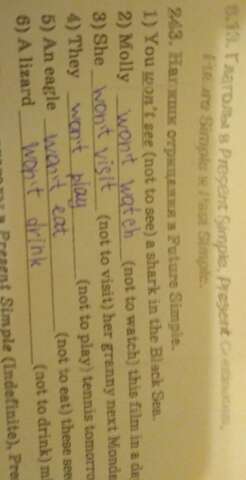 5.13. Глаголы в Present Simple, Present
Future Simple и Past Simple.
243. Напиши отрицания в Future Simple.
1) You won't see (not to see) a shark in the Black Sea.
2) Molly won't watch (not to watch) this film in a
3) She won't visit (not to visit) her granny next
4) They won't play (not to play) tennis
5) An eagle won't eat (not to eat) these
6) A lizard won't drink (not to drink)
в Present Simple (Indefinite),